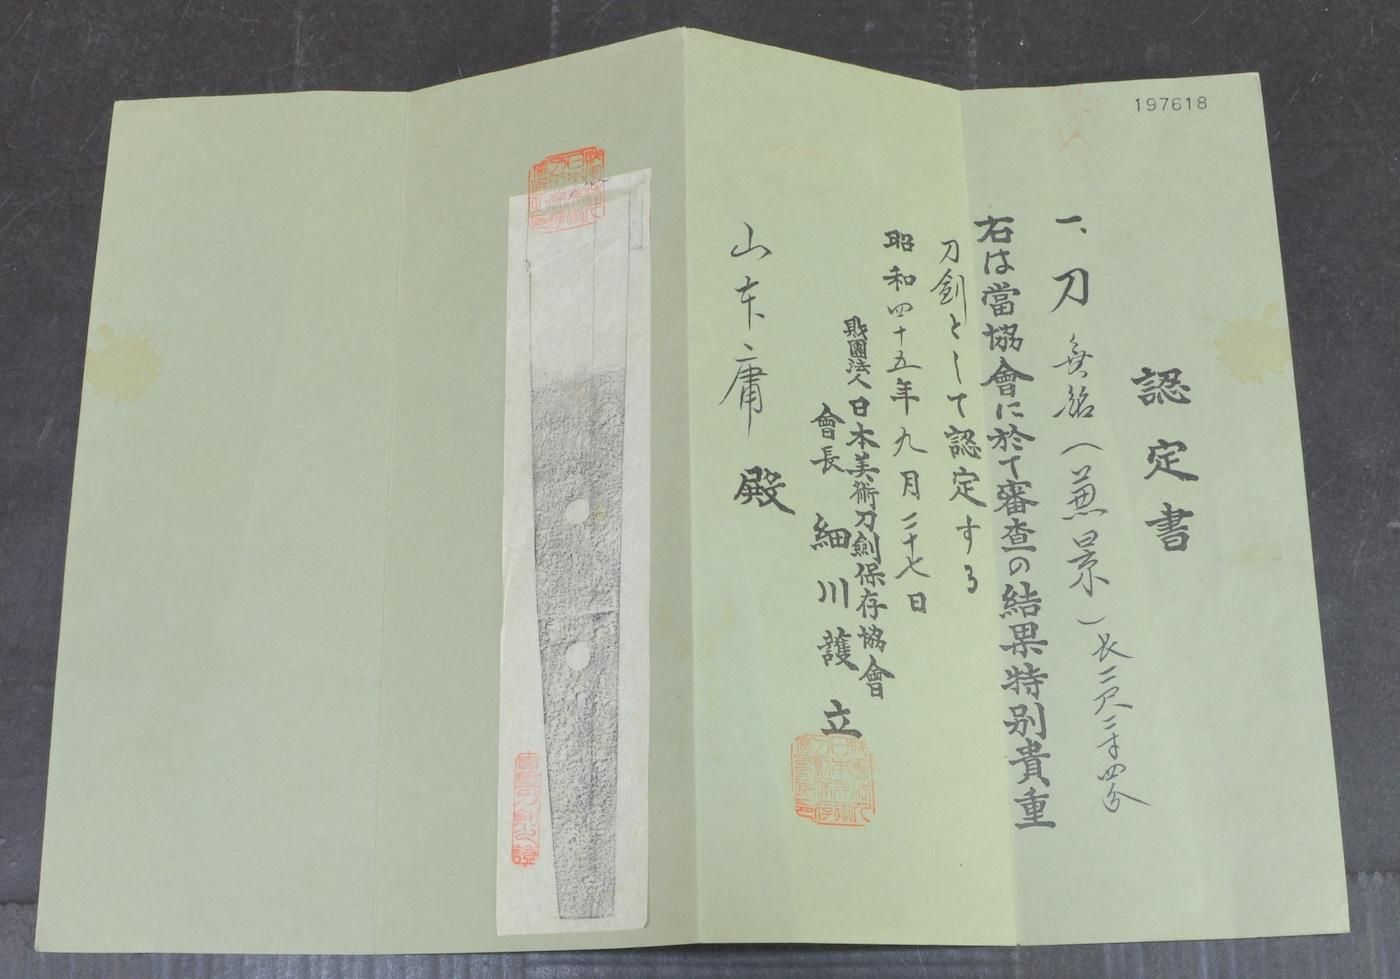 197618
認定書
一、刀 無銘（兼景）長二尺二寸四分
右は當協會に於て審査の結果特別貴重
刀劍として認定する
昭和四十五年九月二十七日
財團法人日本美術刀劍保存協會
會長 細川護立
山本庸殿